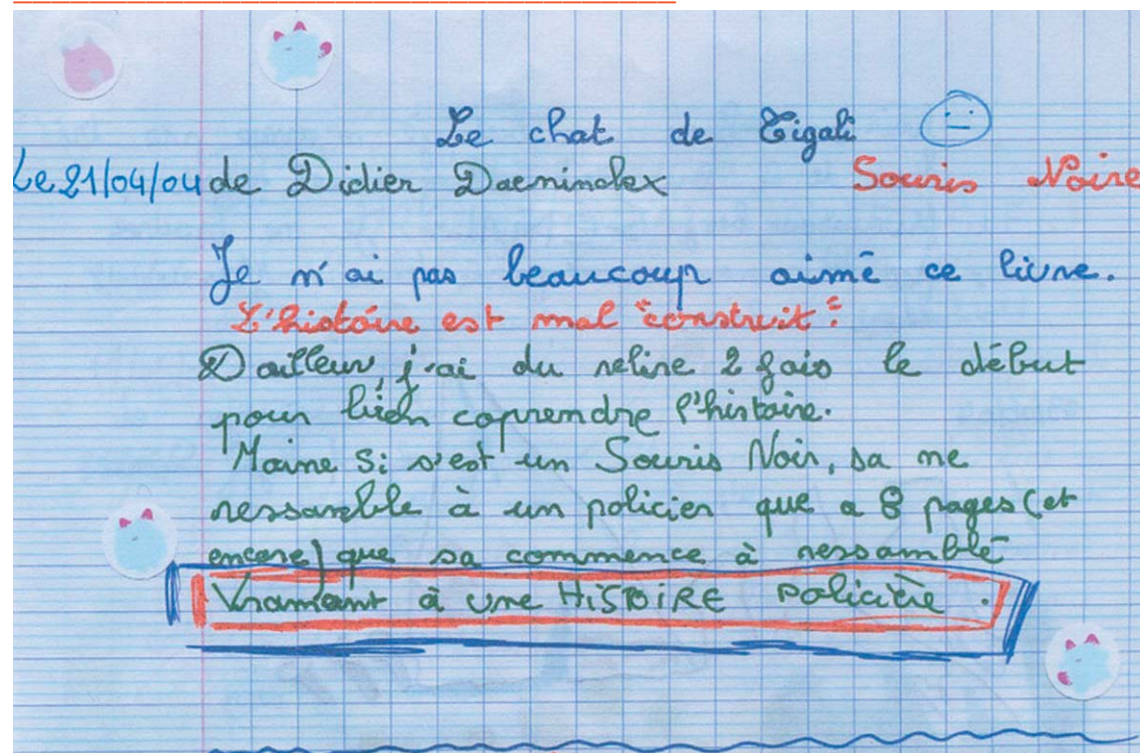 Le chat de Tigali
Le 21/04/04 de Didier Daeninckx Souris Noire
Je n'ai pas beaucoup aimé ce livre.
L'histoire est mal "construit".
Dailleur, j'ai du relire 2 fois le début
pour bien coprendre l'histoire.
Maime si s'est un Souris Noir, sa me
ressamble à un policier que a 8 pages (et
encore) que sa commence à ressamblé
Vramant à une HISTOIRE policière.